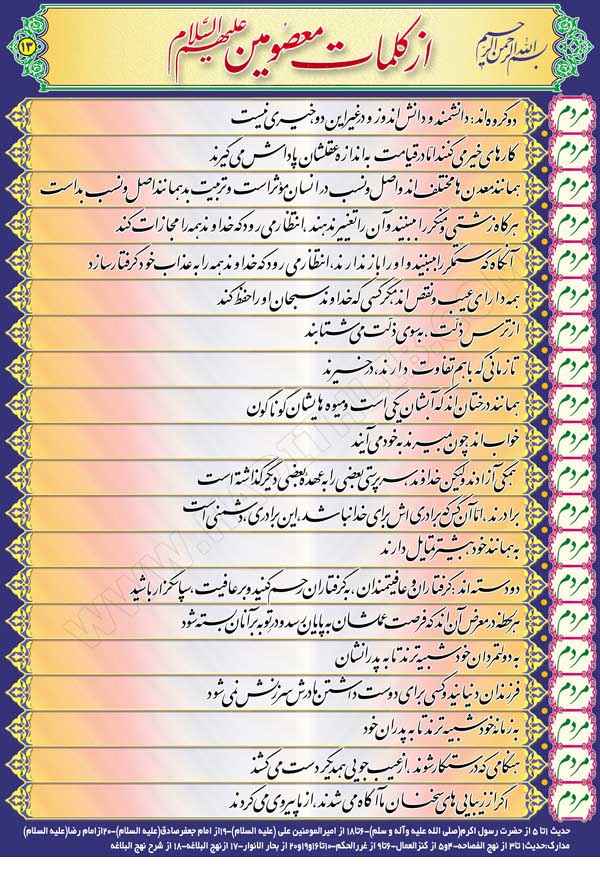 بسم الله الرحمن الرحیم
از کلمات معصومین علیهم السّلام
۱۳
مردم دو گروه‌اند: دانشمند و دانش اندوز و در غیر این دو خیری نیست
مردم کارهای خیر می کنند امّا در قیامت به اندازه عقلشان پاداش می گیرند
مردم همانند معدن ها مختلف اند و اصل و نسب در انسان مؤثر است و تربیت بد همانند اصل و نسب بد است
مردم هرگاه زشتی و منکر را ببینند و آن را تغییر ندهند، انتظار می رود که خداوند همه را مجازات کند
مردم آنگاه که ستمگر را ببینند و او را باز ندارند، انتظار می رود که خداوند همه را به عذاب خود گرفتار سازد
مردم همه دارای عیب و نقص اند بجز کسی که خداوند سبحان او را حفظ کند
مردم از ترس ذلّت، به سوی ذلّت می شتابند
مردم تا زمانی که با هم تفاوت دارند، در خیرند
مردم همانند درختان اند که آبشان یکی است و میوه هایشان گوناگون
مردم خواب اند چون بمیرند به خود می آیند
مردم همگی آزادند ولیکن خداوند سرپرستی بعضی را به عهده بعضی دیگر گذاشته است
مردم برادرند، امّا آن کس که برادری اش برای خدا نباشد، این برادری، دشمنی است
مردم به همانند خود بیشتر تمایل دارند
مردم دو دسته اند: گرفتاران و عافیتمندان، به گرفتاران رحم کنید و بر عافیت، سپاسگزار باشید
مردم هر لحظه در معرض آن اند که فرصت عملشان به پایان برسد و در توبه بر آنان بسته شود
مردم به دولتمردان خود شبیه ترند تا به پدرانشان
مردم فرزندان دنیایند و کسی برای دوست داشتن مادرش سرزنش نمی شود
مردم به زمانه خود شبیه ترند تا به پدران خود
مردم هنگامی که درستکار شوند، از عیب جویی همدیگر دست می کشند
مردم اگر از زیبایی های سخنان ما آگاه می شدند، از ما پیروی می کردند
حدیث ۱ تا ۵ از حضرت رسول اکرم(صلی الله علیه وآله و سلم)-۶تا۱۸ از امیرالمومنین علی (علیه السلام)-۱۹از امام جعفرصادق(علیه السلام)-۲۰ازامام رضا(علیه السلام)
مدارک:حدیث۱تا۳ از نهج الفصاحه-۴و۵ از کنزالعمال-۶تا۹ از غررالحکم-۱۰تا۱۶و۱۹و۲۰ از بحار الانوار-۱۷ ازنهج البلاغه-۱۸ از شرح نهج البلاغه